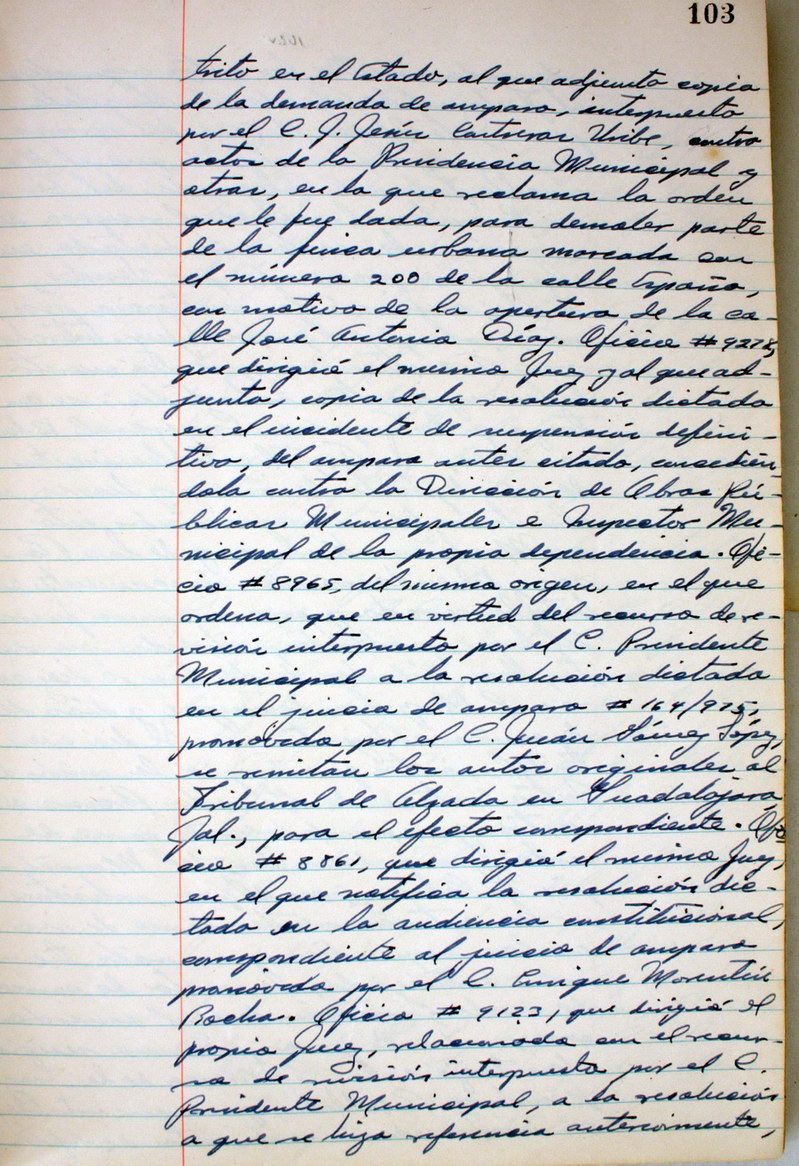 103
trito en el Estado, al que adjunta copia
de la demanda de amparo, interpuesta
por el C. J. Jesús Contreras Uribe, contra
actos de la Presidencia Municipal y
otras, en la que reclama la orden
que le fue dada, para demoler parte
de la finca urbana marcada con
el número 200 de la calle España,
con motivo de la apertura de la ca-
lle José Antonio Díaz. Oficio # 9278,
que dirigió el mismo Juez y al que ad-
junta, copia de la resolución dictada
en el incidente de suspensión defini-
tiva, del amparo antes citado, concedién
dola contra la Dirección de Obras Pú-
blicas Municipales e Inspector Mu-
nicipal de la propia dependencia. Ofi-
cio # 8965, del mismo origen, en el que
ordena, que en virtud del recurso de re-
visión interpuesto por el C. Presidente
Municipal a la resolución dictada
en el juicio de amparo # 164/975,
promovido por el C. Juán Gámez López,
se remitan los autos originales al
Tribunal de Alzada en Guadalajara
Jal., para el efecto correspondiente. Ofi
cio # 8861, que dirigió el mismo Juez,
en el que notifica la resolución dic-
tada en la audiencia constitucional,
correspondiente al juicio de amparo
promovido por el C. Enrique Morentín
Rocha. Oficio # 9123, que dirigió el
propio Juez, relacionado con el recur-
so de revisión interpuesto por el C.
Presidente Municipal, a la resolución
a que se hizo referencia anteriormente,